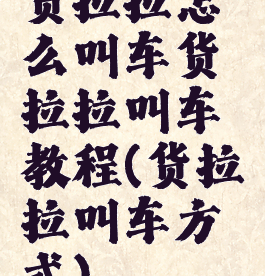 货拉拉怎
么叫车货
拉拉叫车
教程(货拉
拉叫车方
式)